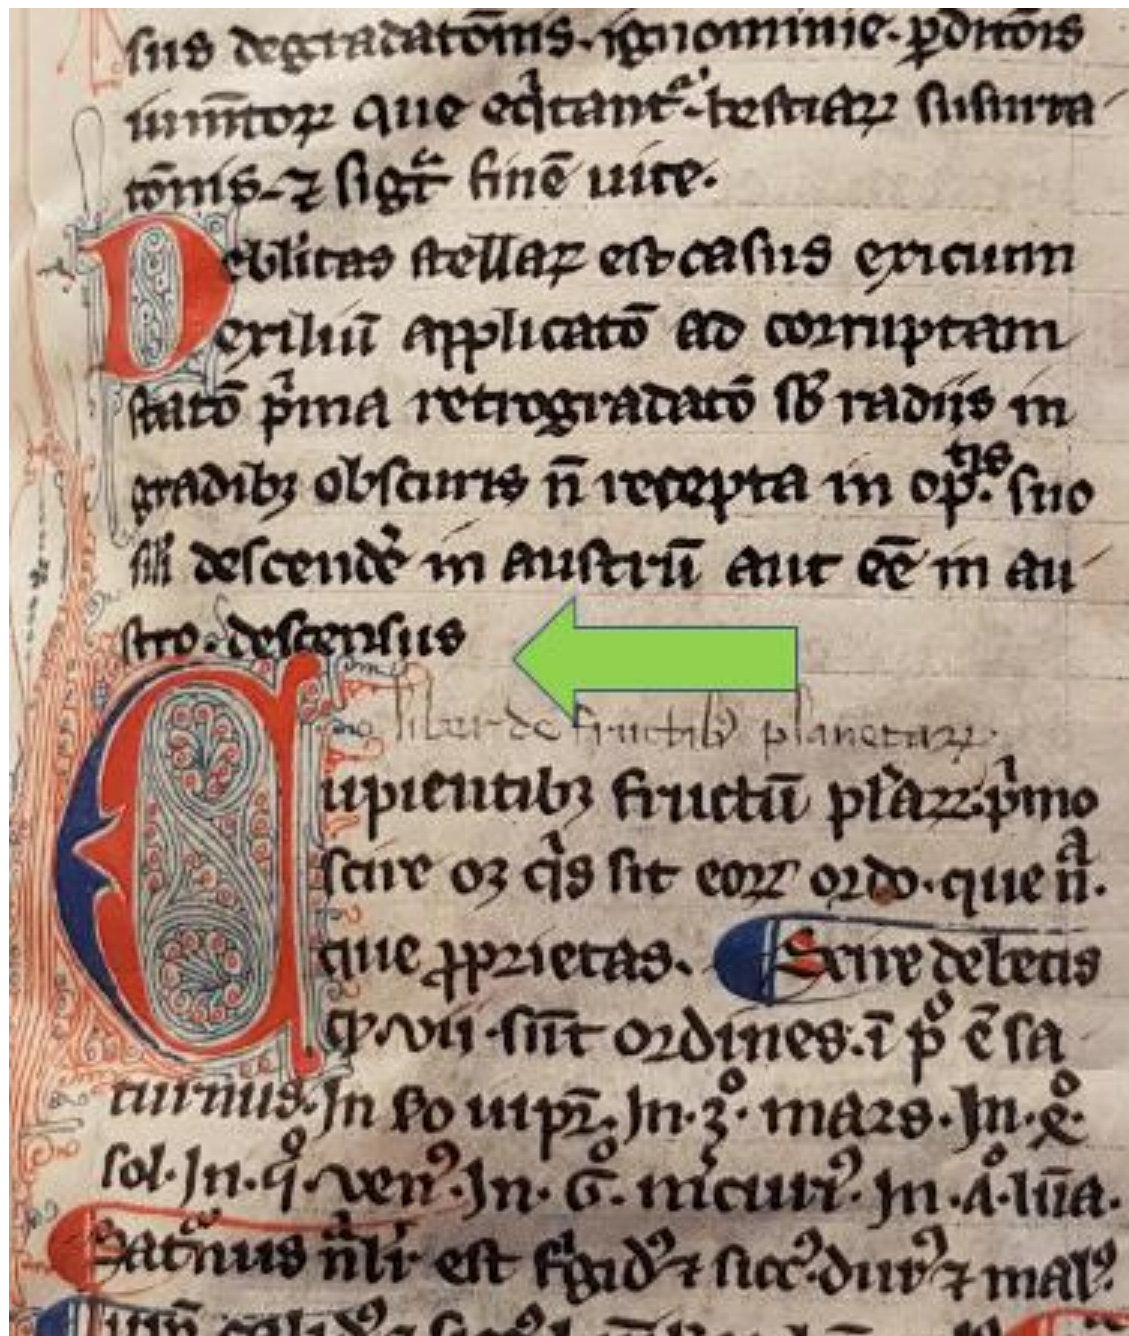 sus degradatōnis. ignominie. ꝑditōis
iumētoꝝ que eqͥtantᵃ. bestiaꝝ susurra
tōnis. ⁊ sigᵃt finē uite.
Debilitas stellaꝝ est casus exicium
exiliū applicatō ad corruptam
statō pͥma retrogradatō sb radiis in
gradibꝫ obscuris n̄ recepta in op̄.tis suo
descendē in austrū aut eē in au
stro. descensus
liber de fructibꝫ planetaꝝ
Cupientibꝫ fructū plaꝝ pͥmo
scire oꝫ qͥs sit eoꝝ ordo. que nᵃ.
que ꝓprietas. Scire debetis
ꝙ. vii. sūt ordines. ī pº ē sa
turnus. In iupr̄. In. 3º. mars. In. 4º.
sol. In. qº. venꝰ. In. 6º. mͥcuriꝰ. In. ʌº. lūa.
Satᵒnus nᵃlr̄ est fͥgidꝰ ⁊ siccꝰ. durꝰ ⁊ malꝰ.